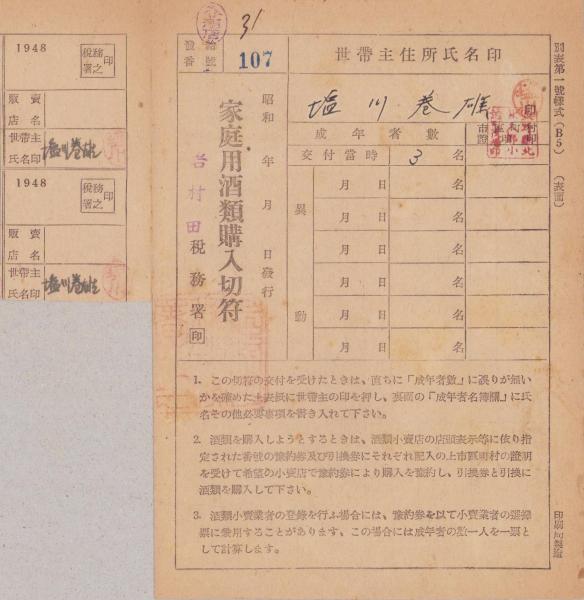 1948
税務署之印
販賣店名
世帶主氏名印
塩川巻雄
1948
税務署之印
販賣店名
世帶主氏名印
塩川巻雄
31
發給番號
107
世帶主住所氏名印
塩川巻雄
印
家庭用酒類購入切符
昭和 年 月 日發行
村田税務署印
成年者數
交付當時 3 名
異動
月 日 名
月 日 名
月 日 名
月 日 名
月 日 名
月 日 名
1. この切符の交付を受けたときは、直ちに「成年者數」に誤りが無い
かを確めた上表紙に世帶主の印を押し、裏面の「成年者名簿欄」に氏
名その他必要事項を書き入れて下さい。
2. 酒類を購入しようとするときは、酒類小賣店の店頭表示等に依り指
定された番號の豫約券及び引換券にそれぞれ記入の上市區町村の證明
を受けて希望の小賣店で豫約券により購入を豫約し、引換券と引換に
酒類を購入して下さい。
3. 酒類小賣業者の登錄を行ふ場合には、豫約券を以て小賣業者の選擇
票に兼用することがあります、この場合には成年者の數一人を一票と
して計算します。
別表第一號樣式(B5)
(表面)
印刷局製造